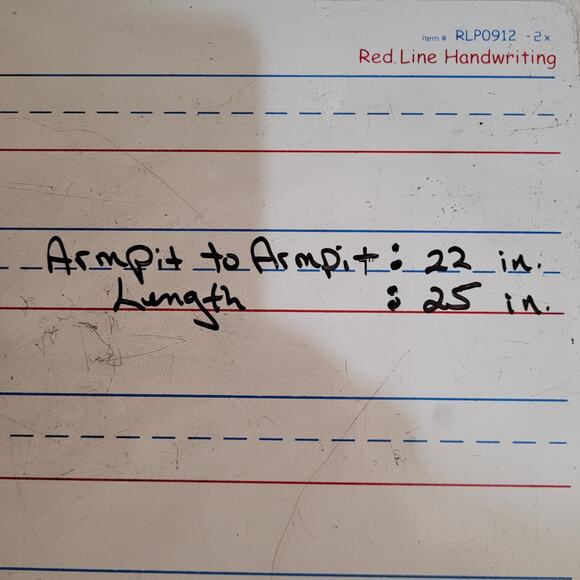 Item # RLP0912 -2x
Red Line Handwriting
Armpit to Armpit : 22 in.
Length : 25 in.